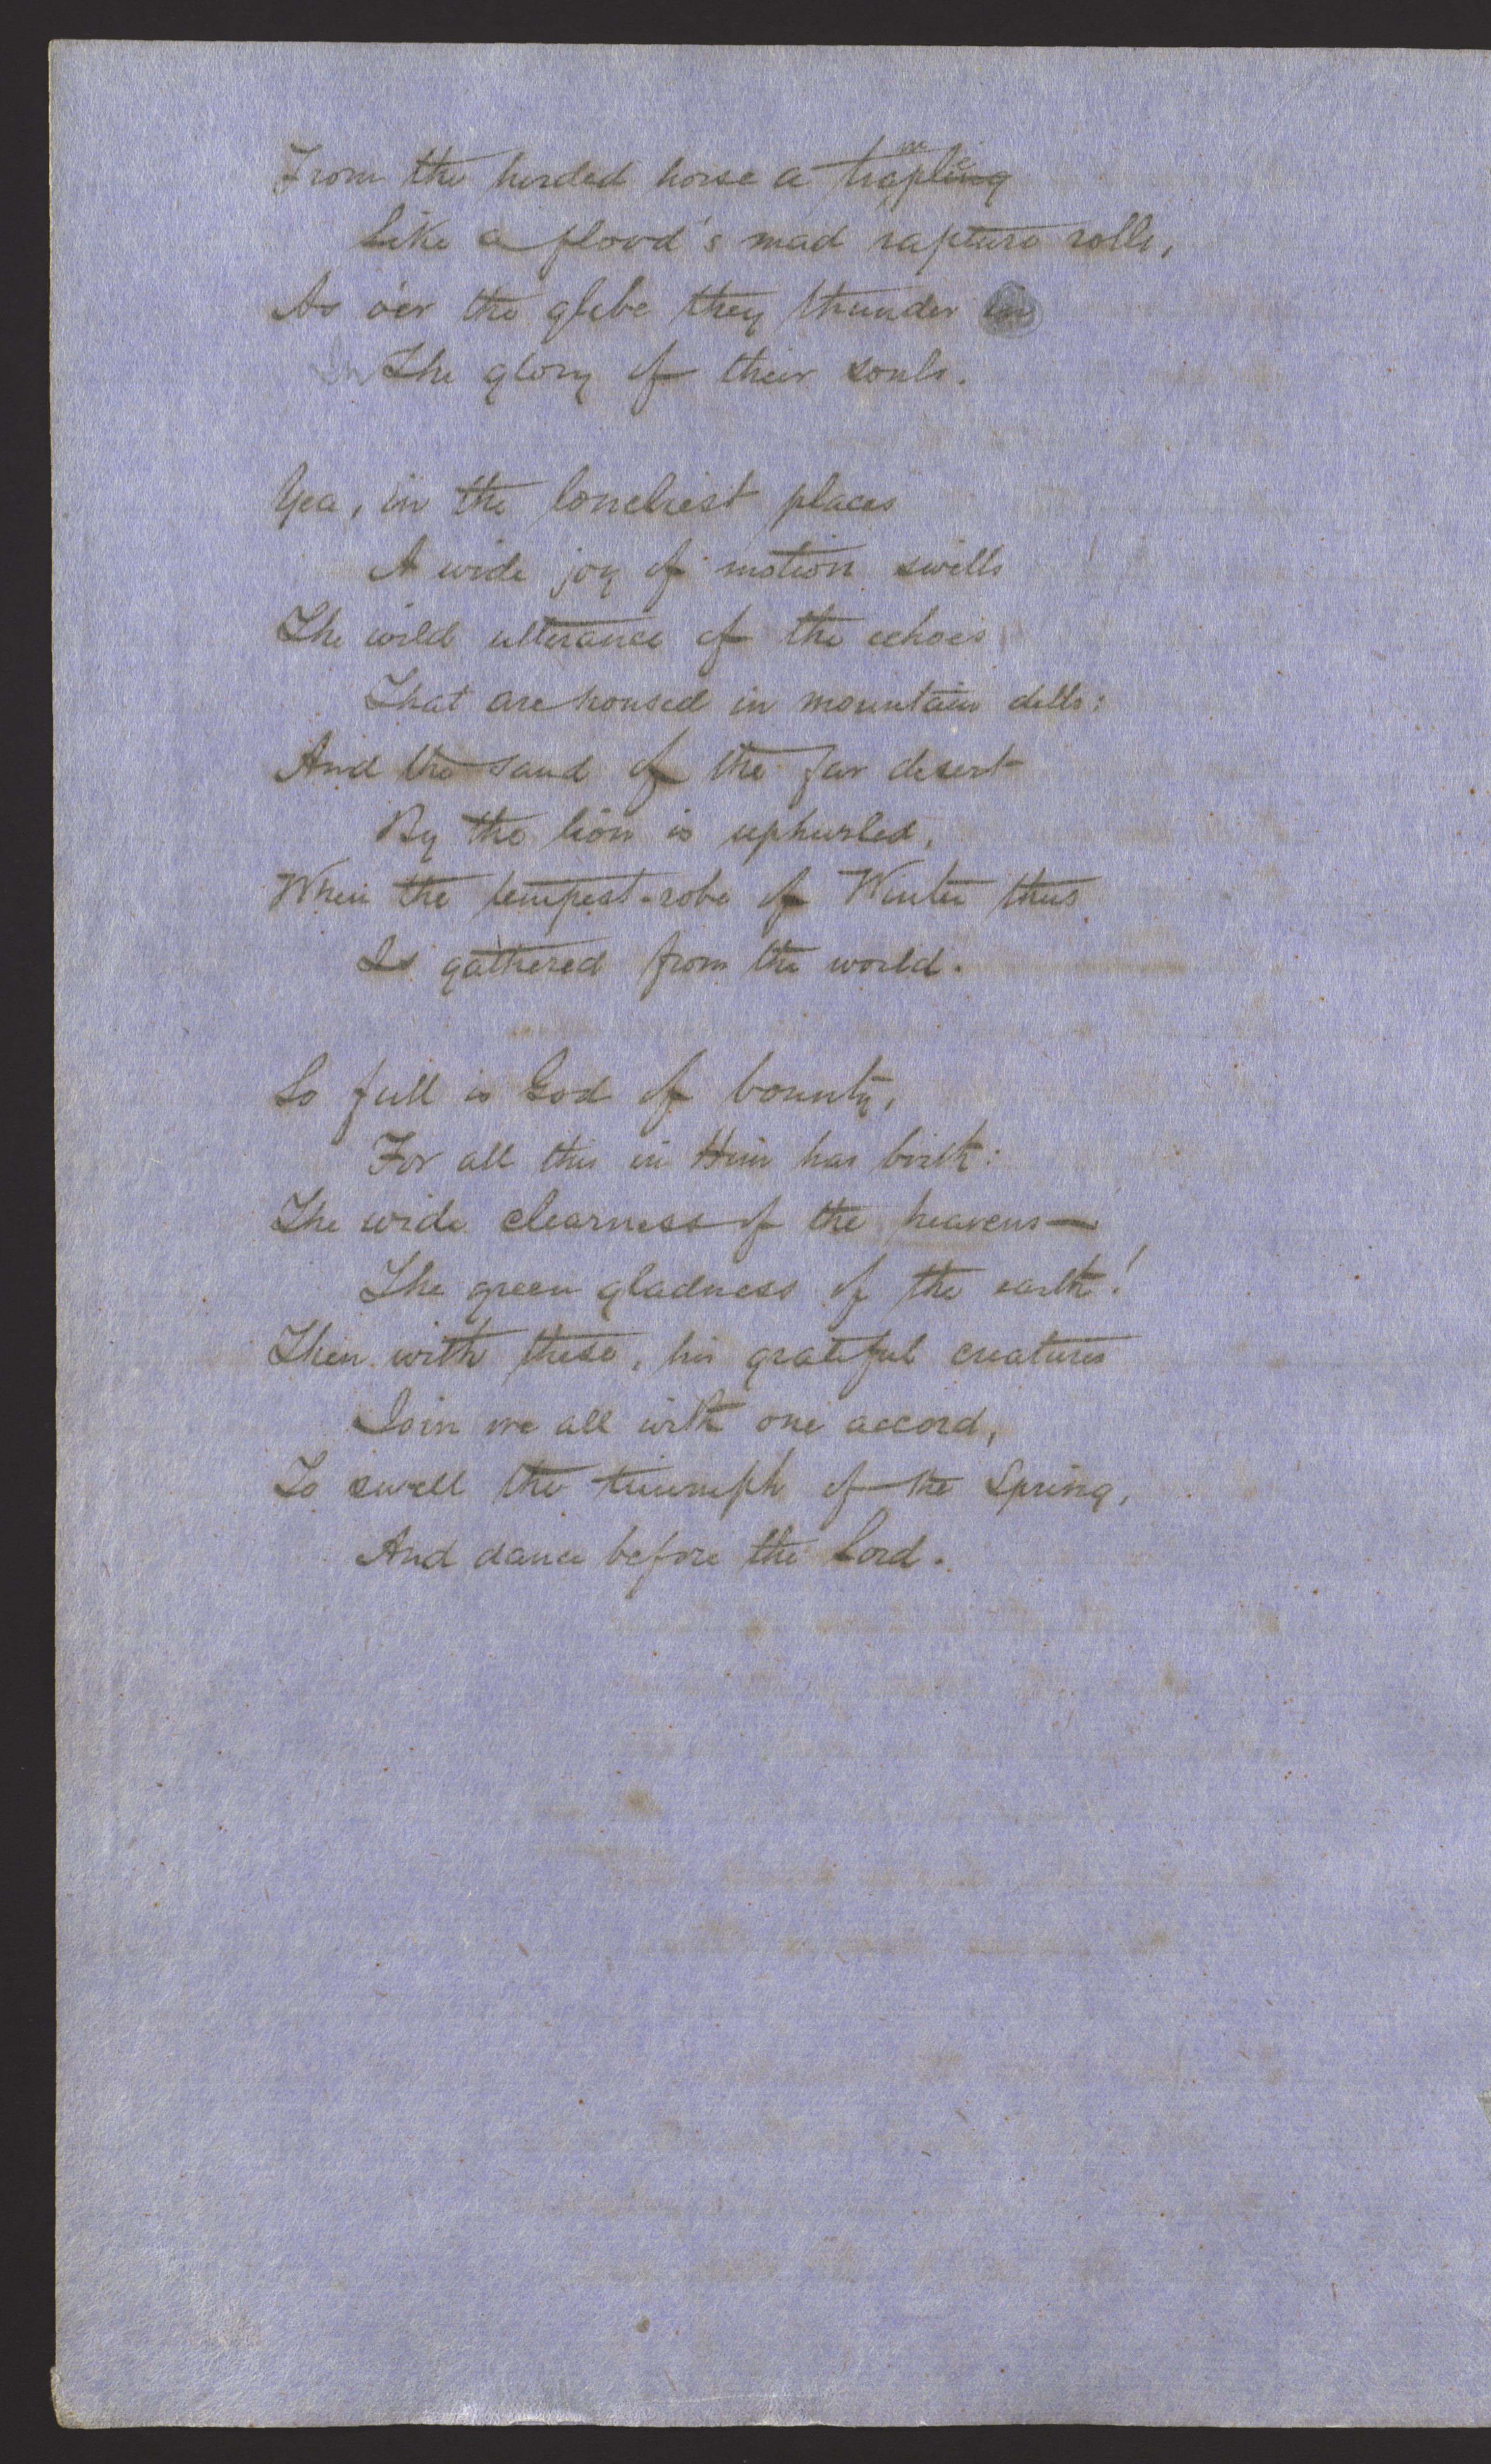 From the herded horse a trample
Like a flood's mad rapture rolls,
As o'er the glebe they thunder in
In The glory of their souls.
Yea, in the loneliest places
A wide joy of motion swells
The wild utterance of the echoes
That are housed in mountain dells:
And the sand of the far desert
By the lion is uphurled,
When the tempest-robe of Winter thus
Is gathered from the world.
So full is God of bounty,
For all this in Him has birth:
The wide clearness of the heavens—
The green gladness of the earth!
Then with these, his grateful creatures
Join we all with one accord,
To swell the triumph of the Spring,
And dance before the Lord.